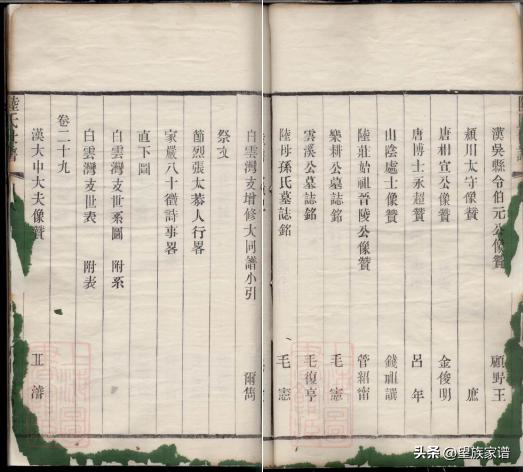 漢吳縣令伯元公像贊 顧野王
潁川太守像贊 庶
唐相宣公像贊 金俊明
唐博士永超贊 呂年
山陰處士像贊 錢祖讓
陸莊始祖晉陵公像贊 管紹甯
樂耕公墓誌銘 毛憲
雲溪公墓誌銘 毛復亨
陸母孫氏墓誌銘 毛憲
白雲灣支增修大同譜小引 爾雋
祭文
節烈張太恭人行畧
家嚴八十徵詩事畧
直下圖
白雲灣支世系圖 附系
白雲灣支世表 附表
卷二十九
漢大中大夫像贊 王濬
陸氏
头条 @望族家谱